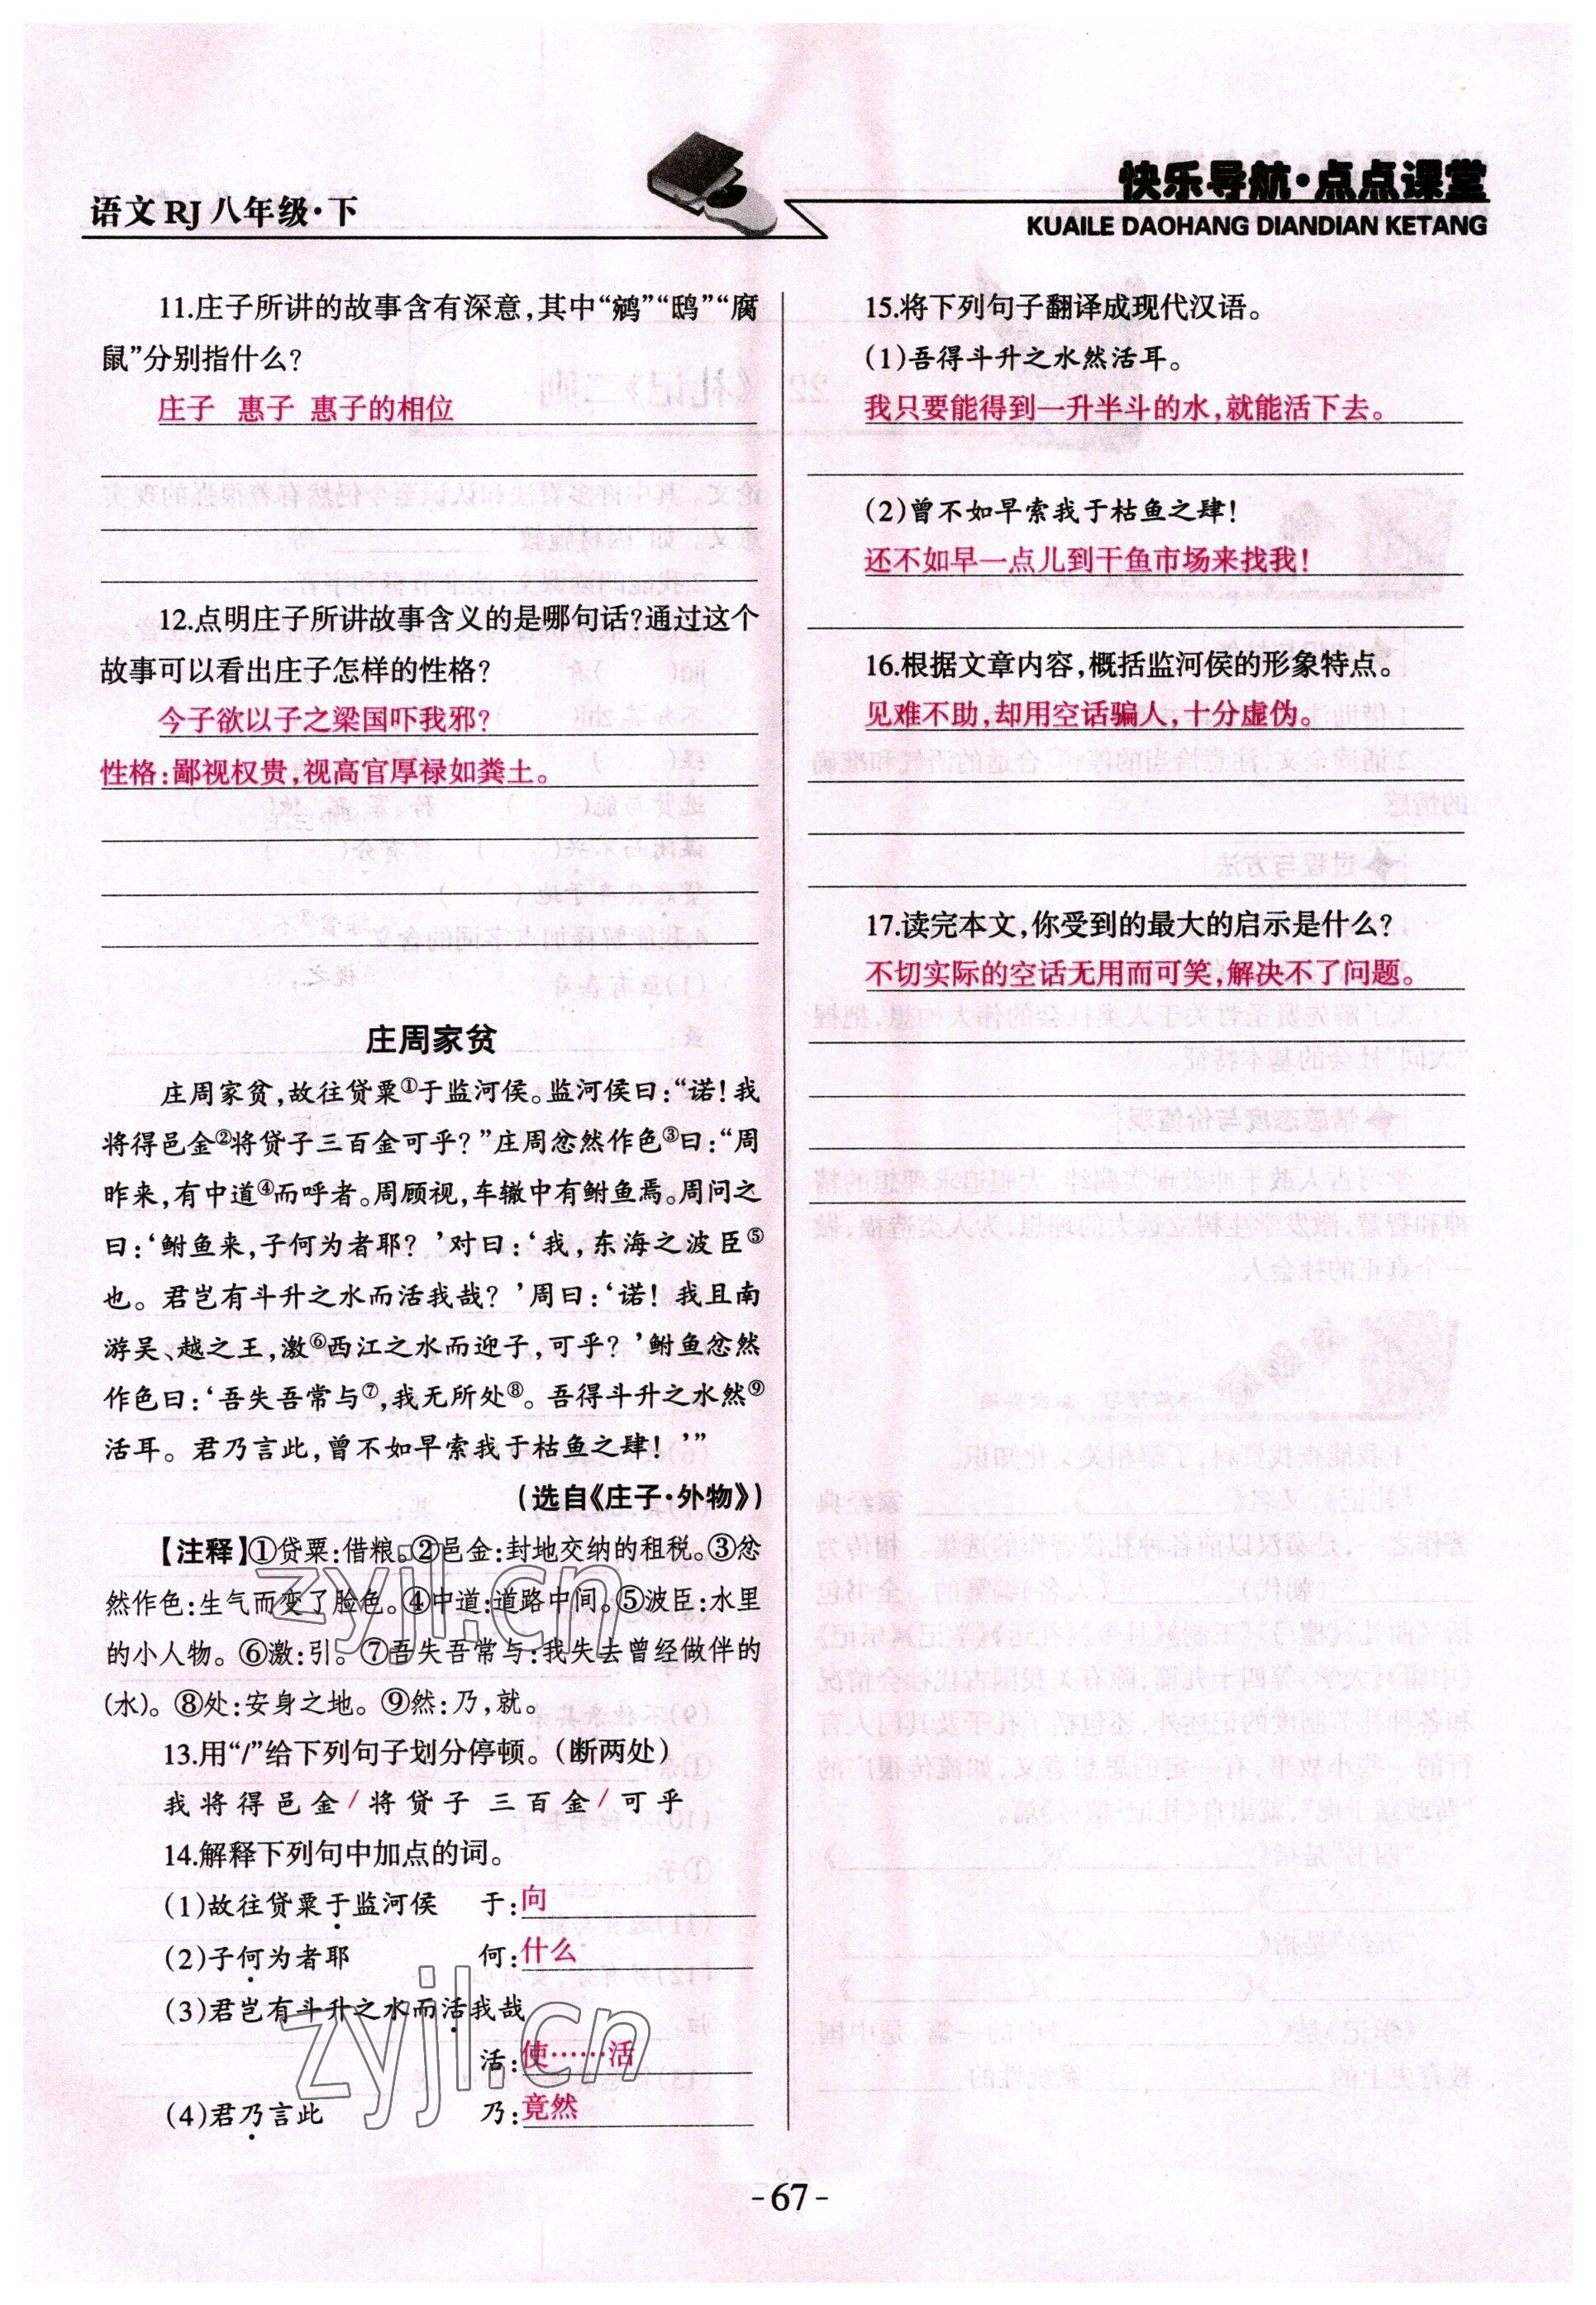 语文RJ八年级·下
快乐导航·点点课堂
KUAILE DAOHANG DIANDIAN KETANG
11.庄子所讲的故事含有深意,其中“鹓”“鸱”“腐
鼠”分别指什么?
庄子 惠子 惠子的相位
12.点明庄子所讲故事含义的是哪句话?通过这个
故事可以看出庄子怎样的性格?
今子欲以子之梁国吓我邪?
性格:鄙视权贵,视高官厚禄如粪土。
庄周家贫
庄周家贫,故往贷粟①于监河侯。监河侯曰:“诺!我
将得邑金②将贷子三百金可乎?”庄周忿然作色③曰:“周
昨来,有中道④而呼者。周顾视,车辙中有鲋鱼焉。周问之
曰:‘鲋鱼来,子何为者耶?’对曰:‘我,东海之波臣⑤
也。君岂有斗升之水而活我哉?’周曰:‘诺!我且南
游吴、越之王,激⑥西江之水而迎子,可乎?’鲋鱼忿然
作色曰:‘吾失吾常与⑦,我无所处⑧。吾得斗升之水然⑨
活耳。君乃言此,曾不如早索我于枯鱼之肆!’”
(选自《庄子·外物》)
【注释】①贷粟:借粮。②邑金:封地交纳的租税。③忿
然作色:生气而变了脸色。④中道:道路中间。⑤波臣:水里
的小人物。⑥激:引。⑦吾失吾常与:我失去曾经做伴的
(水)。⑧处:安身之地。⑨然:乃,就。
13.用“/”给下列句子划分停顿。(断两处)
我将得邑金/将贷子三百金/可乎
14.解释下列句中加点的词。
(1)故往贷粟于监河侯 于:向
(2)子何为者耶 何:什么
(3)君岂有斗升之水而活我哉
活:使……活
(4)君乃言此 乃:竟然
15.将下列句子翻译成现代汉语。
(1)吾得斗升之水然活耳。
我只要能得到一升半斗的水,就能活下去。
(2)曾不如早索我于枯鱼之肆!
还不如早一点儿到干鱼市场来找我!
16.根据文章内容,概括监河侯的形象特点。
见难不助,却用空话骗人,十分虚伪。
17.读完本文,你受到的最大的启示是什么?
不切实际的空话无用而可笑,解决不了问题。
zyjl.cn
zyjl.cn
-67-